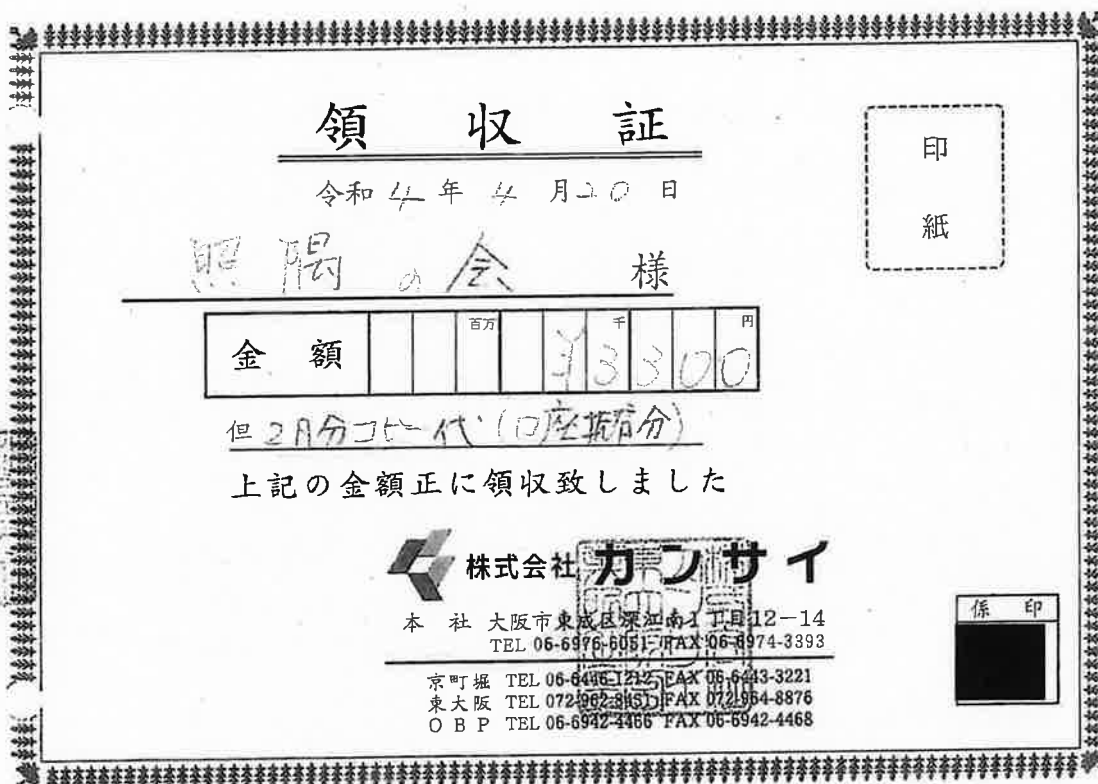 領 収 証
印
紙
令和4年4月20日
照隅の会 様
金 額 百万 千 円
¥3300
但 2月分コピー代(口座振替分)
上記の金額正に領収致しました
株式会社 カンサイ
本 社 大阪市東成区深江南1丁目12-14
TEL 06-6976-6051 FAX 06-6974-3393
京町堀 TEL 06-6446-1212 FAX 06-6443-3221
東大阪 TEL 072-962-8451 FAX 072-964-8876
OBP TEL 06-6942-4466 FAX 06-6942-4468
係 印